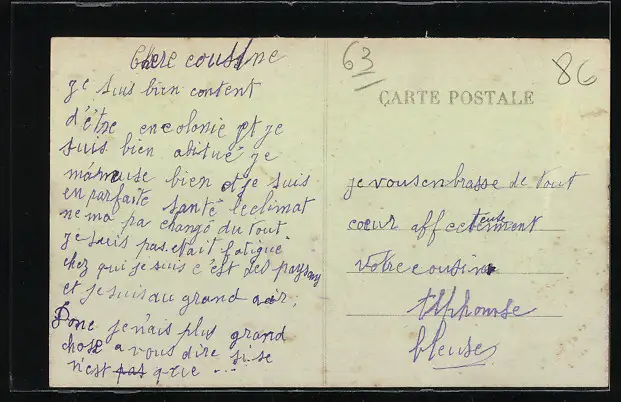 Chere cousine
je suis bien content
d'être encolonie et je
suis bien abitué je
mámeuse bien et je suis
en parfaite santé leclimat
ne ma pa changé du tout
je suis pas etait fatigue
chez qui je suis c'est des paysans
et je suis au grand air,
Donc je n'ais plus grand
chose a vous dire si se
n'est pas que ...
63
86
CARTE POSTALE
je vous enbrasse de tout
cœur affectteusement
votre cousin
Alphonse
bleuse